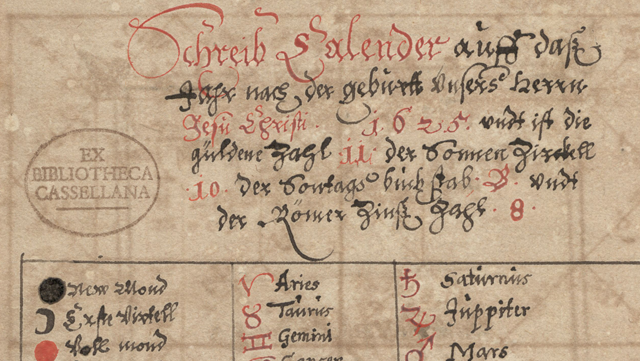 Schreib Calender auff daß
Jahr nach der geburtt Unsers Herrn
Jesu Christi. 1625. undt ist die
güldene Zahl 11. der Sonnen Zirckell
.10. der Sontags buchstab. B. undt
der Römer Zinß Zahl. 8.
EX
BIBLIOTHECA
CASSELLANA
New Mond
Erste Virtell
Voll mond
♈ Aries
♉ Taurus
♊ Gemini
Cancer
♄ Saturnus
♃ Juppiter
♂ Mars